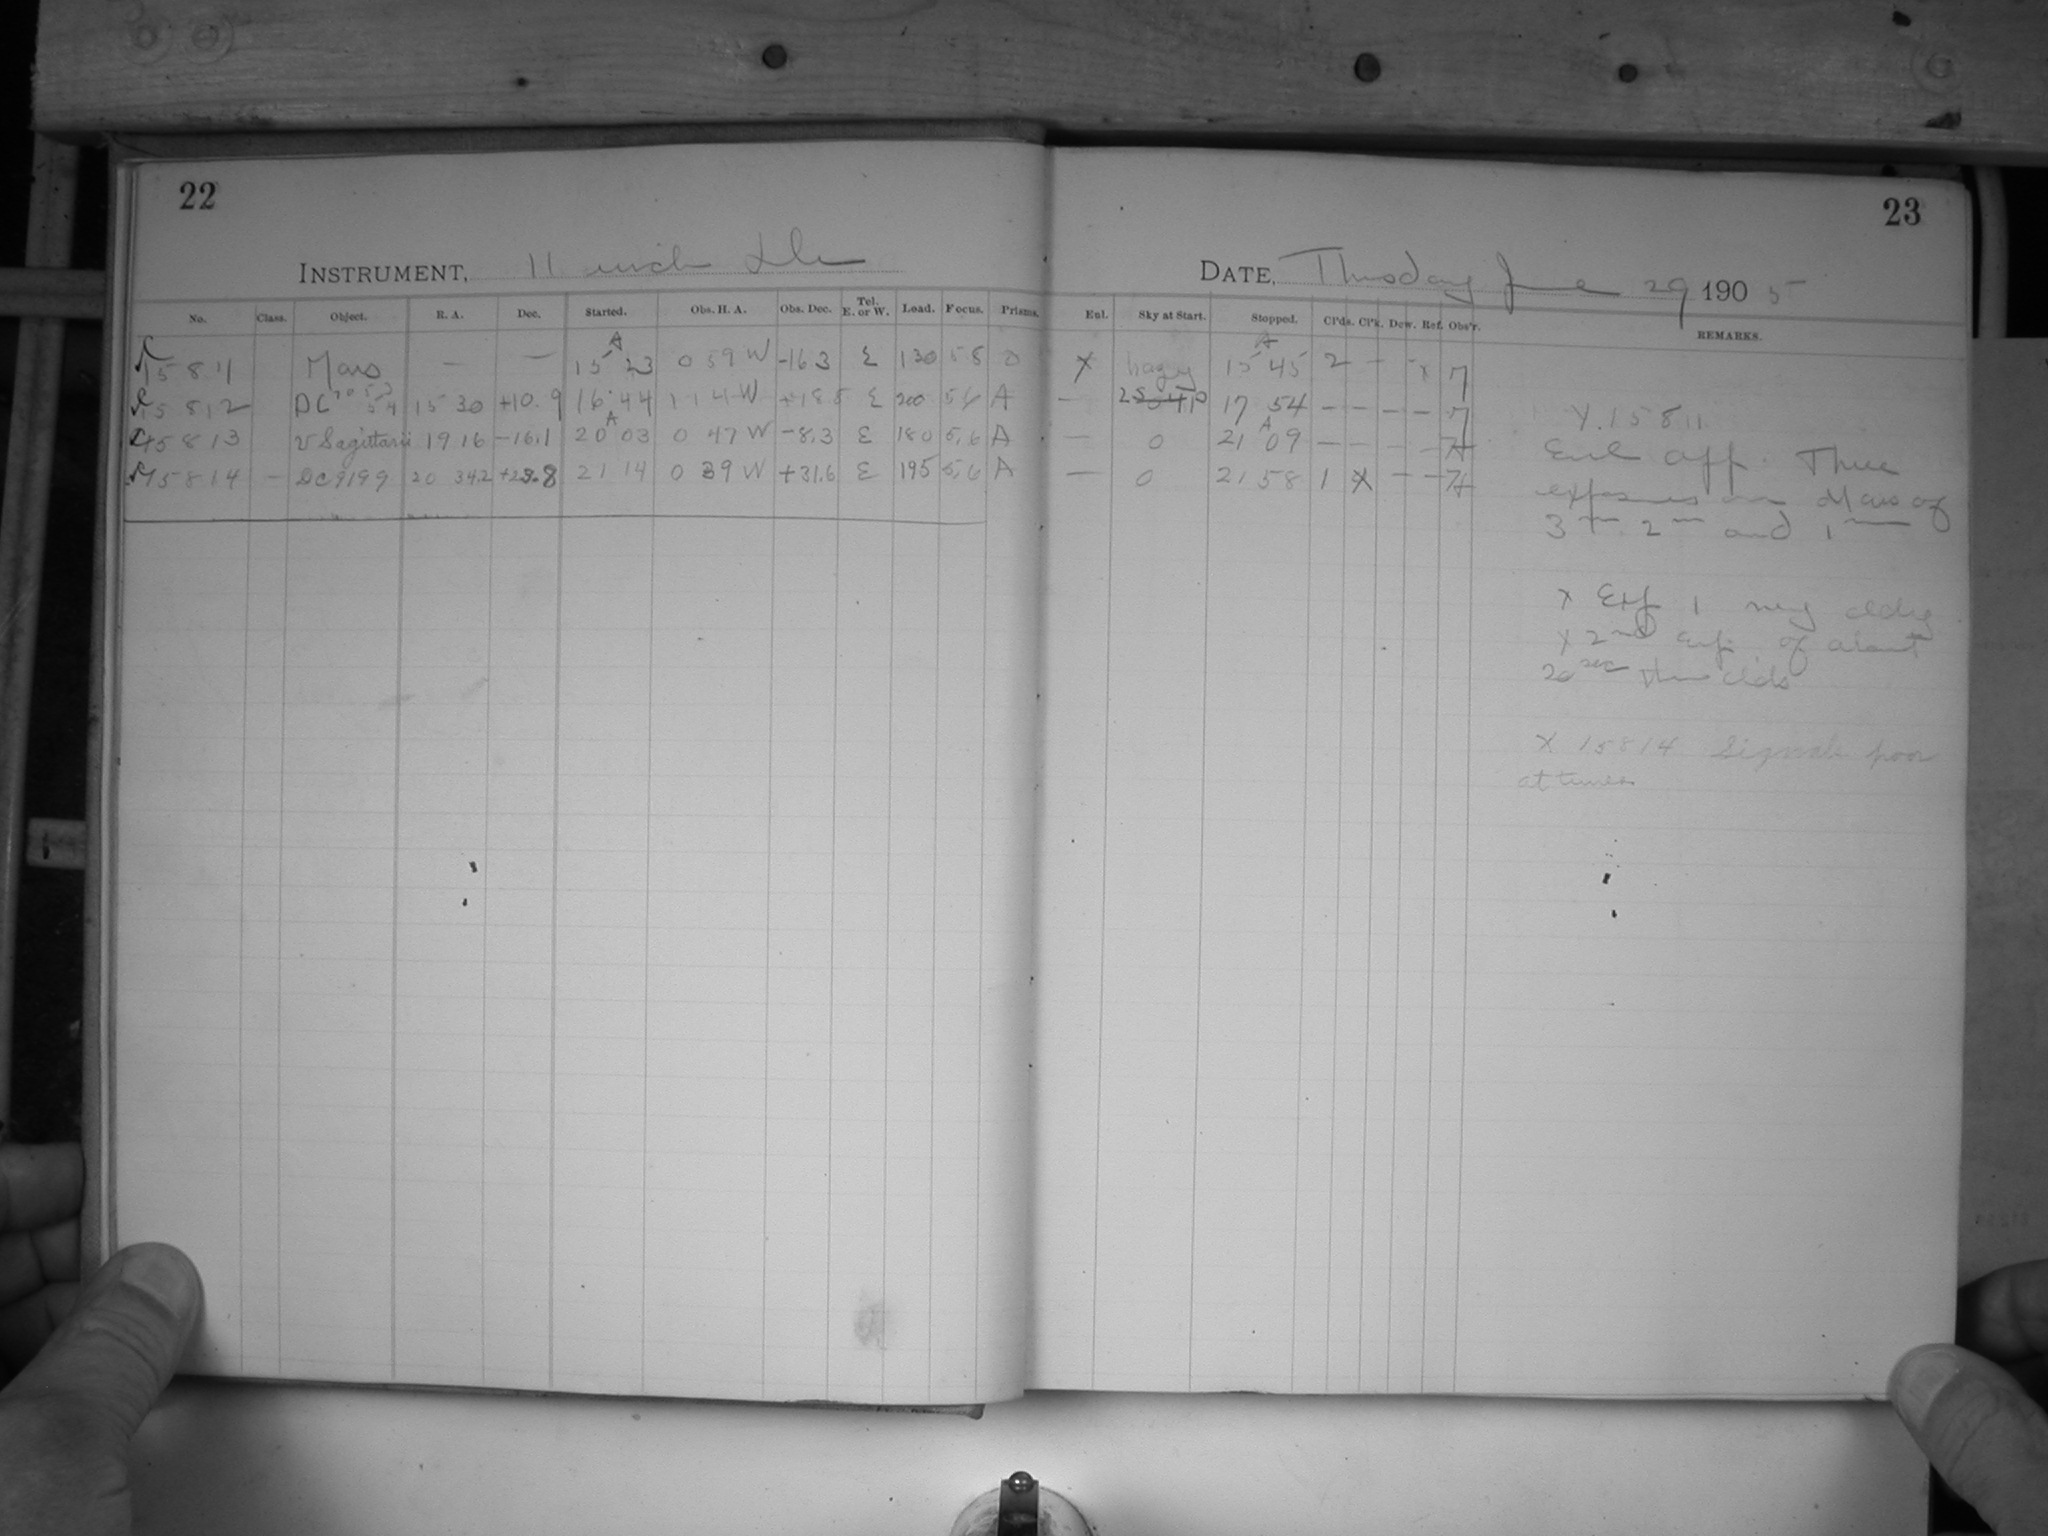 22
23
INSTRUMENT, 11 inch
DATE, Thursday June 29 1905
No. Class. Object. R. A. Dec. Started. Obs. H. A. Obs. Dec. Tel. E. or W. Load. Focus. Prisms. Enl. Sky at Start. Stopped. Cl'ds. Cl'k. Dew. Ref. Obs'r. REMARKS.
15811 Mars — — 15 A 23 0 59 W -16.3 E 130 5.8 0 X hazy 15 A 45 2 - - x 7
15812 DC 15 30 +10.9 16 44 1 14 W +18.5 E 200 5.6 A — 17 54 — — — — 7
15813 v Sagittarii 19 16 -16.1 20 A 03 0 47 W -8.3 E 180 5.6 A — 0 21 A 09 — — — —
15814 — DC9199 20 34.2 +23.8 21 14 0 39 W +31.6 E 195 5.6 A — 0 21 58 1 X — —
X.15811
Enl off. Three
exposures on Mars of
3m 2m and 1m
X Exp 1 very cldy
X 2nd exp. of about
20 sec thru clds
X 15814 Signals poor
at times